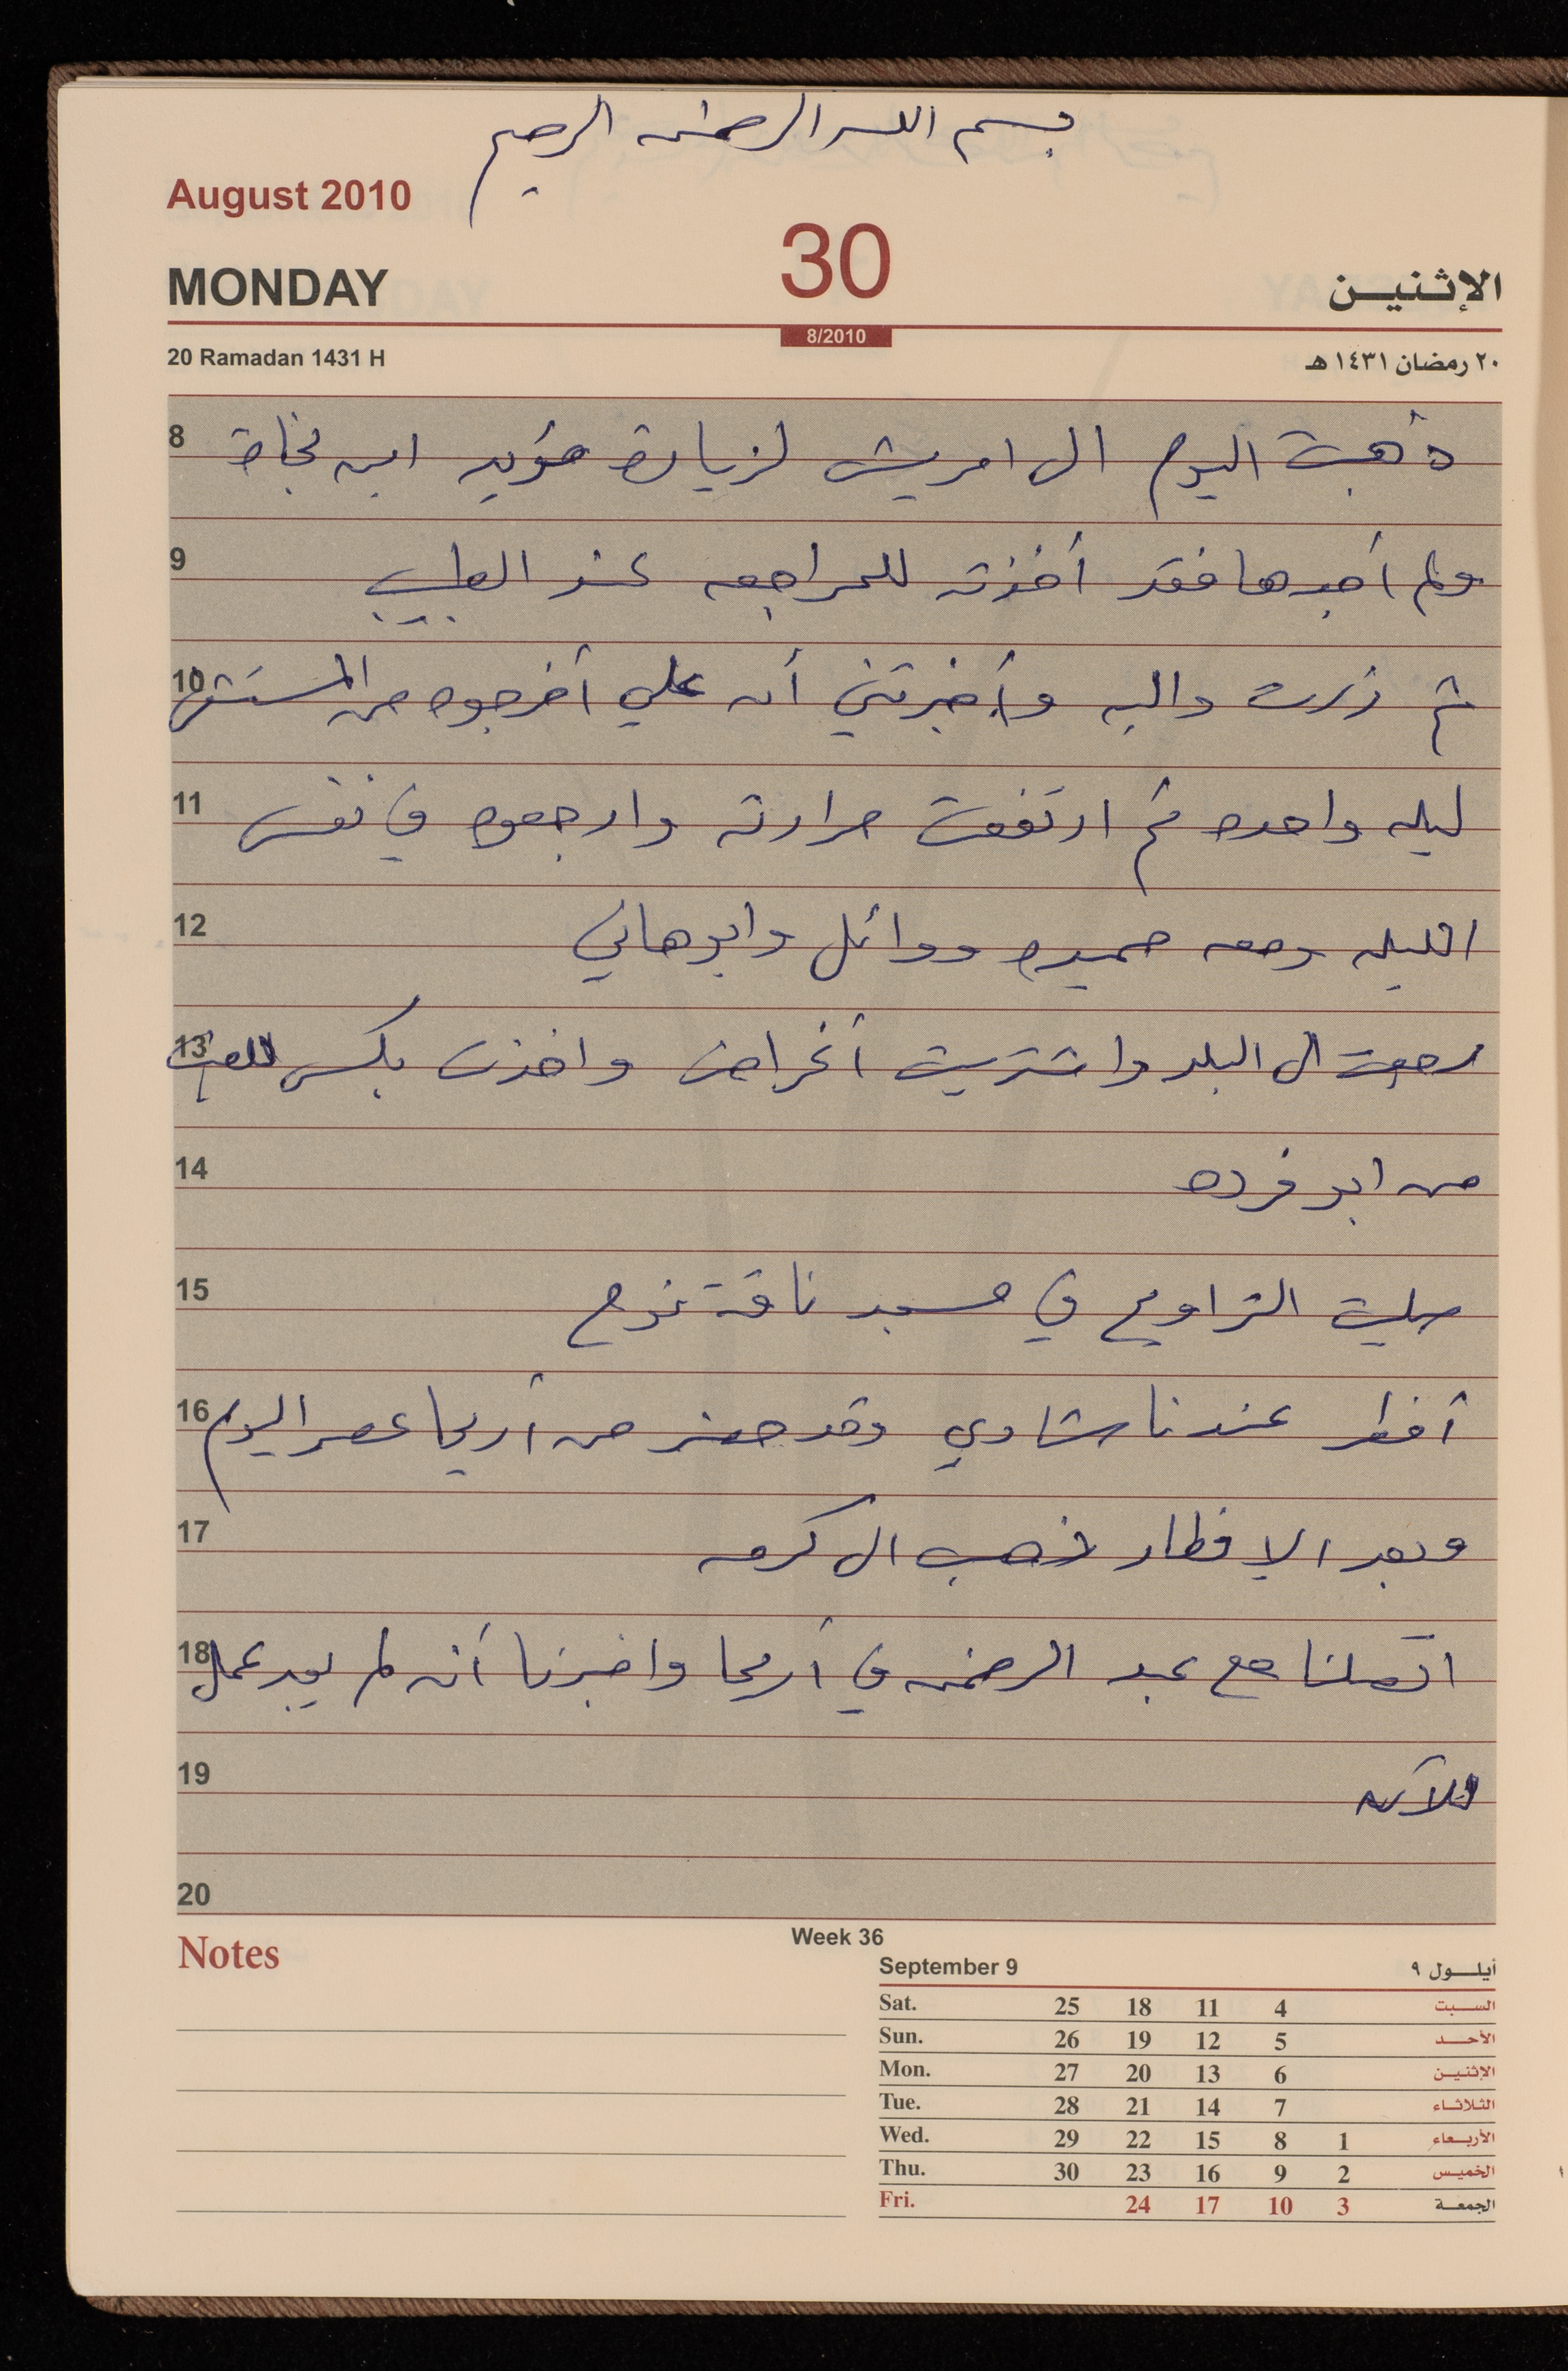 بسم الله الرحمن الرحيم
August 2010
30
MONDAY
الإثنين
8/2010
20 Ramadan 1431 H
٢٠ رمضان ١٤٣١ هـ
8 ذهبت اليوم الى امريش لزيارة مؤيد ابن نجاة
9 ولم أجدها فقد أخذته للمراجعه عند الطبيب
10 ثم زرت واليه وأخبرتني أن علي أخرجوه من المستشفى
11 ليله واحده ثم ارتفعت حرارته وارجعوه في نفس
12 الليله ومعه حميده ووائل وابو هاني
13 رجعت الى البلد واشتريت أغراض واخذت بكس للعنب
14 من ابو فرده
15 صليت التراويح في مسجد ناقة نوح
16 أفطر عندنا شادي وقد حضر من أريحا عصر اليوم
17 وبعد الافطار ذهب الى كرمه
18 اتصلنا مع عبد الرحمن في أريحا واخبرنا أنه لم يجد عمل
19 للآن
20
Notes
Week 36
September 9 أيلول ٩
Sat. 25 18 11 4 السبت
Sun. 26 19 12 5 الأحد
Mon. 27 20 13 6 الإثنين
Tue. 28 21 14 7 الثلاثاء
Wed. 29 22 15 8 1 الأربعاء
Thu. 30 23 16 9 2 الخميس
Fri. 24 17 10 3 الجمعة